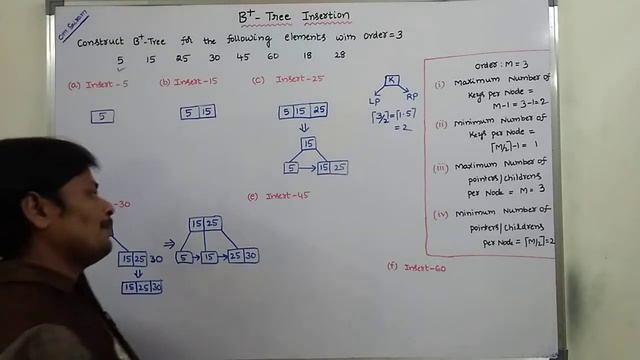 Om Sairam
B+- Tree Insertion
Construct B+-Tree for the following elements with order=3
5 15 25 30 45 60 18 28
(a) Insert-5
5
(b) Insert-15
5 15
(c) Insert-25
5 15 25
15
5 15 25
K
LP RP
⌈3/2⌉=⌈1.5⌉
= 2
-30
15 25 30
15 25 30
15 25
5 15 25 30
(e) Insert-45
(f) Insert-60
order: M = 3
(i) Maximum Number of
Keys per Node =
M-1 = 3-1=2
(ii) Minimum Number of
Keys per Node =
⌈M/2⌉-1 = 1
(iii) Maximum Number of
pointers/childrens
per Node = M = 3
(iv) Minimum Number of
pointers/childrens
per Node = ⌈M/2⌉=2